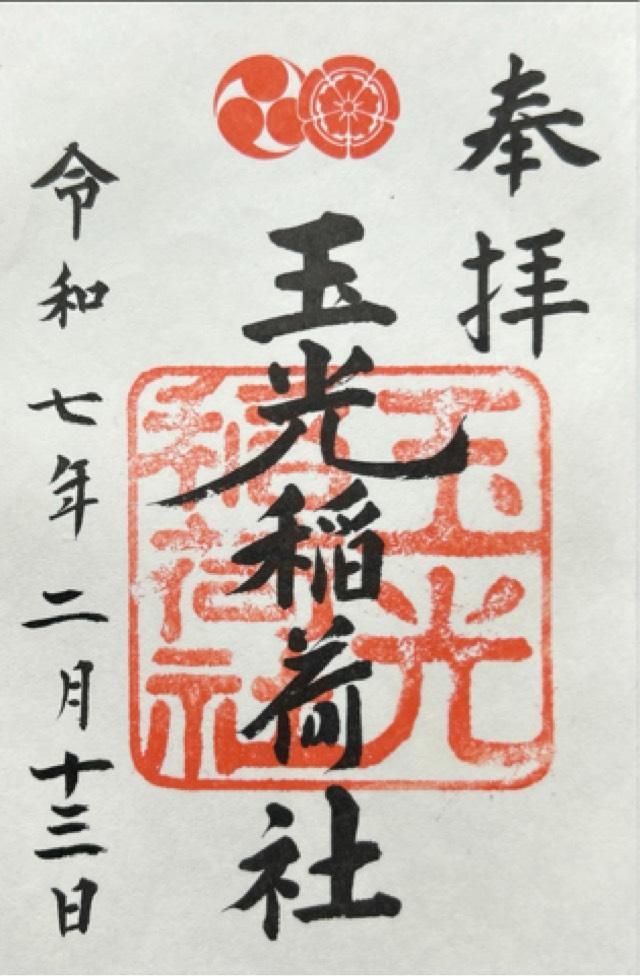 奉拝
玉光稲荷社
玉光
稲荷社
令和七年二月十三日